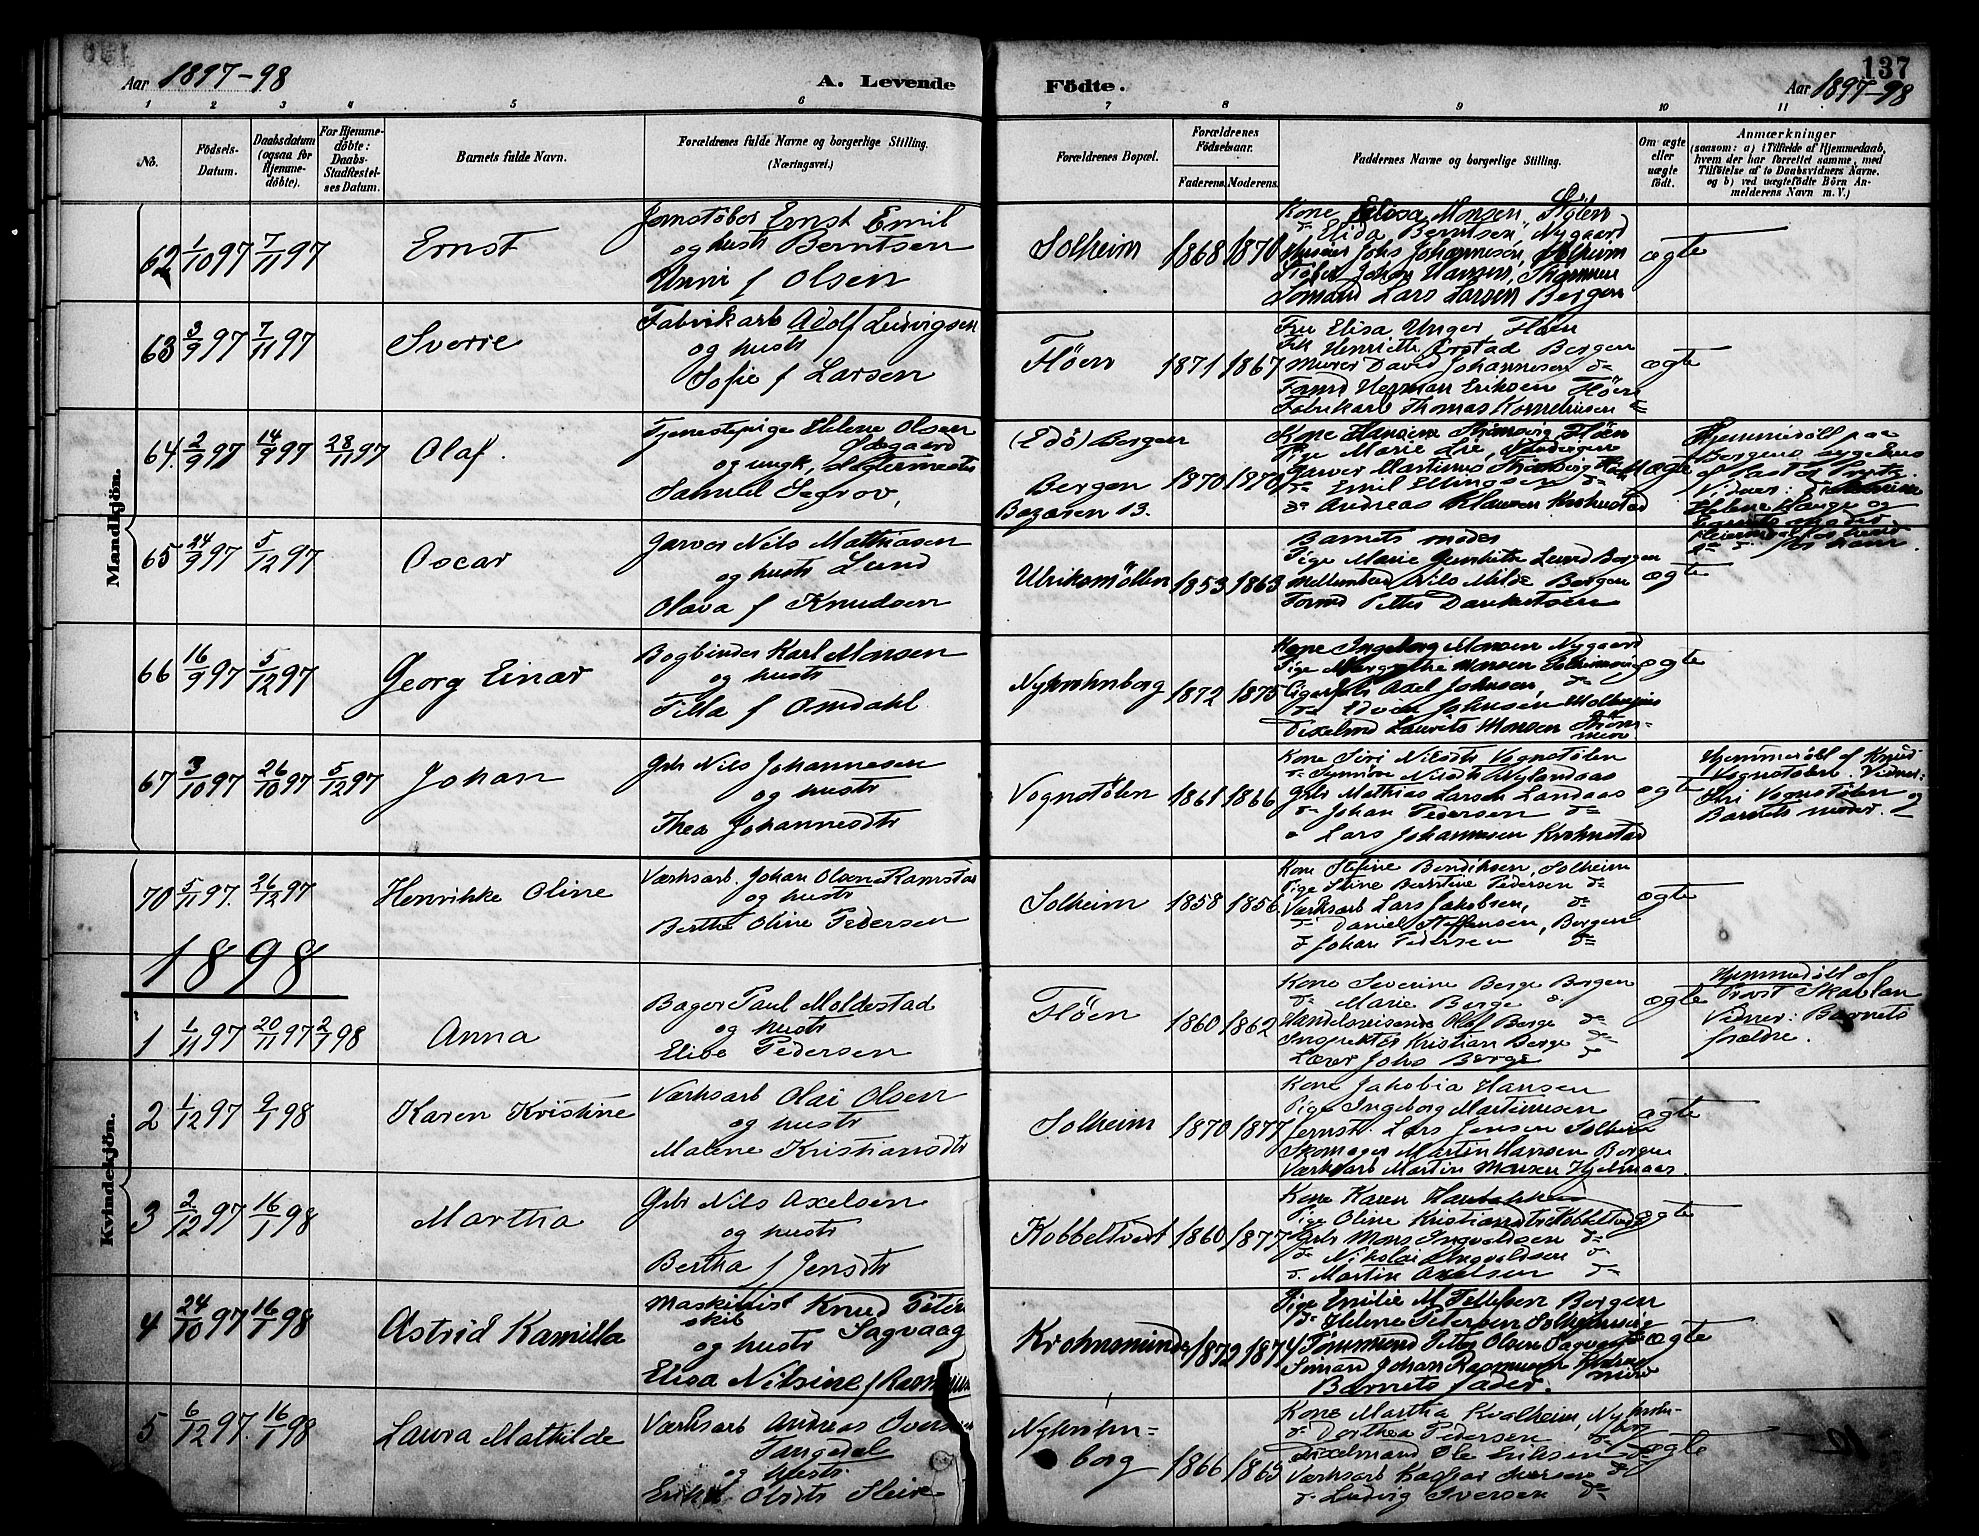 137
Aar 1897-98
A. Levende
Födte.
Aar 1897-98
1 2 3 4 5 6 7 8 9 10 11
No.
Födsels-
Datum.
Daabsdatum
(ogsaa for
Hjemme-
döbte).
For Hjemme-
döbte:
Daabs-
Stadfæstel-
ses Datum.
Barnets fulde Navn.
Forældrenes fulde Navne og borgerlige Stilling.
(Næringsvei.)
Forældrenes Bopæl.
Forældrenes
Födselsaar.
Faderens. Moderens.
Faddernes Navne og borgerlige Stilling.
Om ægte
eller
uægte
födt.
Anmærkninger
(saasom: a) i Tilfælde af Hjemmedaab,
hvem der har forrettet samme, med
Tilföielse af to Daabsvidners Navne.
og b) ved uægtefödte Börn An-
melderens Navn m. V.)
Mandkjön.
62 1/10 97 7/11 97
Ernst
Jernstøber Ernst Emil
og hustr Berntsen
Unni f Olsen
Solheim
1868 1870
Kone Elisa Monsen,
d Elida Berntsen, Nygaard
Johs Johannesen, Solheim
Johan Hansen,
Sømand Lars Larsen Bergen
ægte
63 3/9 97 7/11 97
Sverre
Fabrikarb Adolf Ludvigsen
og hustr
Sofie f Larsen
Fløen
1871 1867
Fru Elisa Unger Fløen
Frk Henriette Bergen
Murer David Johannesen d=
Formd Herman Eriksen Fløen
Fabrikarb Thomas Kornelius­sen d=
ægte
64. 2/9 97 14/9 97 28/11 97
Olaf.
Tjenestepige Helene Olsen
og ungk,
Samuel Segrov,
Bergen
Bergen
Bazaren 13.
1870 1870
Kone Hansine Fløen
Pige Marie Lie,
Garver Martinus
d= Emil Ellingsen d=
d= Andreas Krohnstad
Hjemmedøbt paa
Bergens sygehus
Helene Hauge og
65 24/9 97 5/12 97
Oscar
Garver Nils Mathiasen
og hustr Lund
Olava f Knudsen
Ulriksmøllen
1853 1863
Barnets moder
Pige Marie Lund Bergen
Nils Milde Bergen
Formd Petter Dankertsen
ægte
66 16/9 97 5/12 97
Georg Einar
Bogbinder Karl Monsen
og hustr
Tilla f Omdahl
Nykrohnborg
1872 1875
Kone Ingeborg Monsen Nygaard
Pige Margrethe Monsen Solheimsvig
Axel Johnsen, d=
d= Edvar Johnsen
Dixelmd Laurits Monsen
ægte
67 3/10 97 26/10 97 5/12 97
Johan
Grb Nils Johannesen
og hustr
Thea Johannesdtr
Vognstølen
1861 1866
Kone Siri Nilsdtr Vognstølen
d= Synnøve Nilsdtr Nylandaas
Grb Mathias Larsen Landaas
d= Johan Pedersen d=
d Lars Johannesen Krohnstad
ægte
Hjemmedøbt af Knud
Vognstølen. Vidner:
Siri Vognstølen og
Barnets moder.
Kvindekjön.
70 5/11 97. 26/12 97
Henrikke Oline
Værksarb. Johan Olsen Ramstad
og hustr
Berthe Oline Pedersen
Solheim
1858 1856
Kone Stefine Bendiksen, Solheim
Pige Stine Berntine Pedersen d=
Værksarb Lars Jakobsen, d=
d= Daniel Steffensen, Bergen
d= Johan Pedersen d=
ægte
1898
1 1/11 97 20/11 97 2/1 98
Anna
Bager Paul Moldestad
og hustr
Elise Pedersen
Fløen
1860 1862
Kone Severine Berge Bergen
d= Marie Berge d
Handelsreisende Olaf Berge d=
Inspektør Kristian Berge d=
Lærer Johs Berge d
ægte
Hjemmedøbt af
Provst Skavlan
Vidner: Barnets
forældre.
2 1/12 97 9/1 98
Karen Kristine
Værksarb Olai Olsen
og hustr
Malene Kristiansdtr
Solheim
1870 1877
Kone Jakobia Hansen
Pige Ingeborg Martinusen
Jernst. Lars Jensen Solheim
Skomager Martin Hansen Bergen
Værksarb Martin Monsen Hjelmaas.
ægte
3 2/12 97 16/1 98
Martha
Grb Nils Axelsen
og hustr
Bertha f Jensdtr
Kobbeltvedt
1860 1877
Kone Karen
Pige Oline Kristiansdtr Kobbeltvedt
Grb Mons Ingvaldsen d=
d= Nikolai Ingvaldsen d
d. Martin Axelsen d=
ægte
4 24/10 97 16/1 98
Astrid Kamilla
Maskinist Knud Peter
skib Sagvaag
og hustr
Elisa Nilsine f
Krohnsminde
1872 1874
Pige Emilie M Tellefsen Bergen
d= Helene Petersen
Tømmermd Petter Olsen Sagvaag
Sømand Johan Rasmusen
Barnets fader.
ægte
5 6/12 97. 16/1 98
Laura Mathilde
Værksarb Andreas Iversen
Tangedal
og Hustr.
Olsdtr
Nykrohn=
borg
1866 1869
Kone Martha Kvalheim, Nykrohn-
borg
d= Dorthea Pedersen d=
Dixelmand Ole Eriksen d=
Værksarb Kaspar Iversen d=
d= Ludvig Iversen d=
ægte